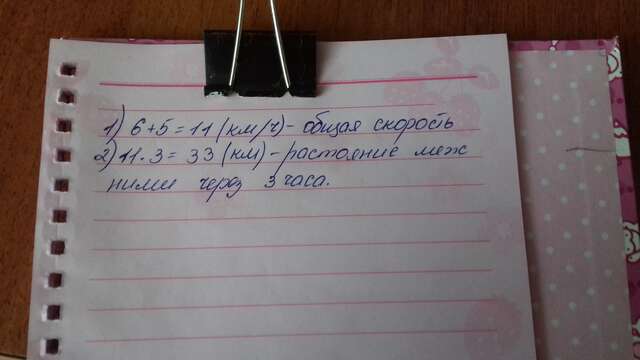 1) 6 + 5 = 11 (км/ч) - общая скорость
2) 11 · 3 = 33 (км) - растояние меж
ними через 3 часа.